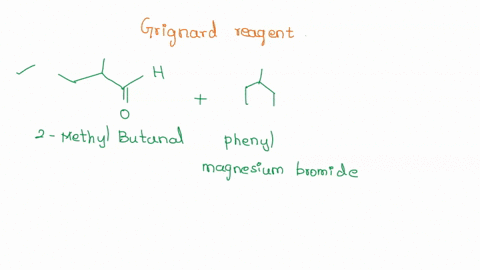 Grignard reagent
H
+
O
2-Methyl Butanal
phenyl
magnesium bromide